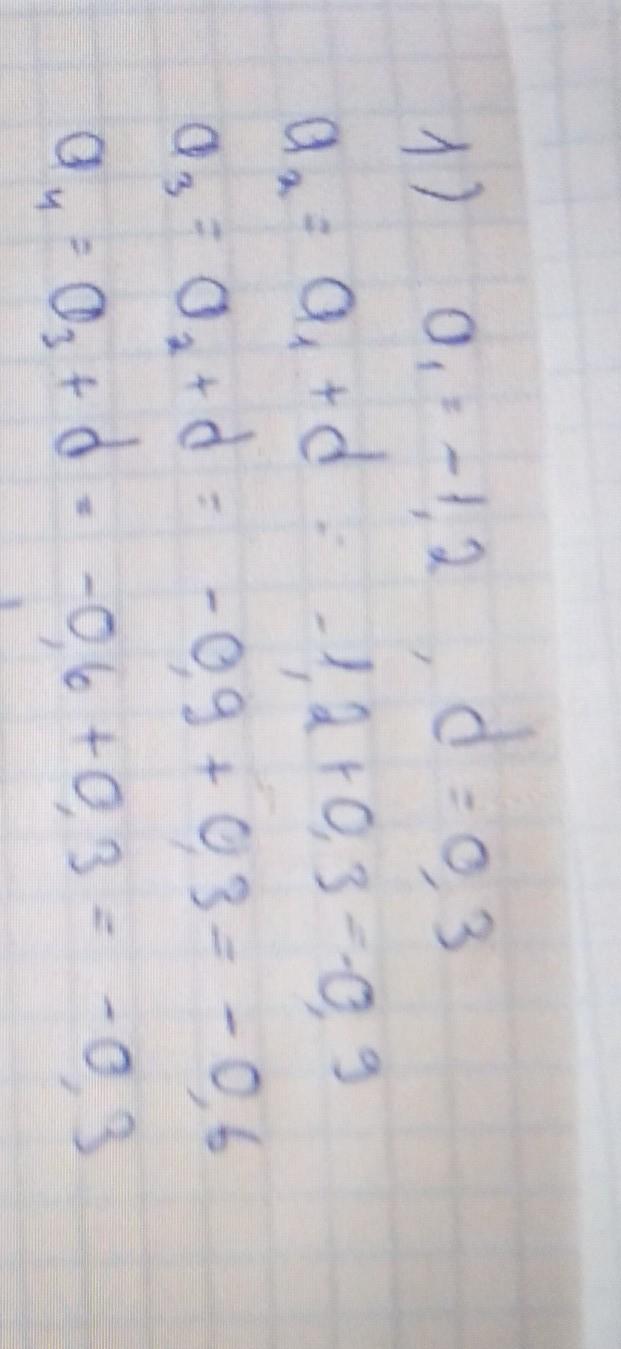 1) a₁ = -1,2 , d = 0,3
a₂ = a₁ + d = -1,2 + 0,3 = -0,9
a₃ = a₂ + d = -0,9 + 0,3 = -0,6
a₄ = a₃ + d = -0,6 + 0,3 = -0,3